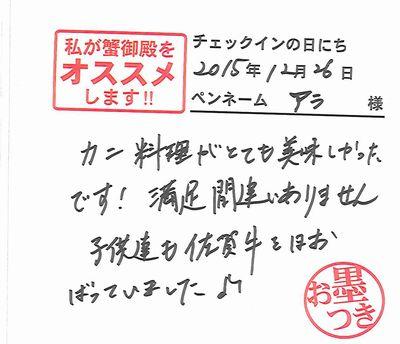 私が蟹御殿を
オススメ
します!!
チェックインの日にち
2015年12月26日
ペンネーム アラ 様
カニ料理がとても美味しかった
です! 満足間違いありません
子供達も佐賀牛をほお
ばっていました♪
お墨つき